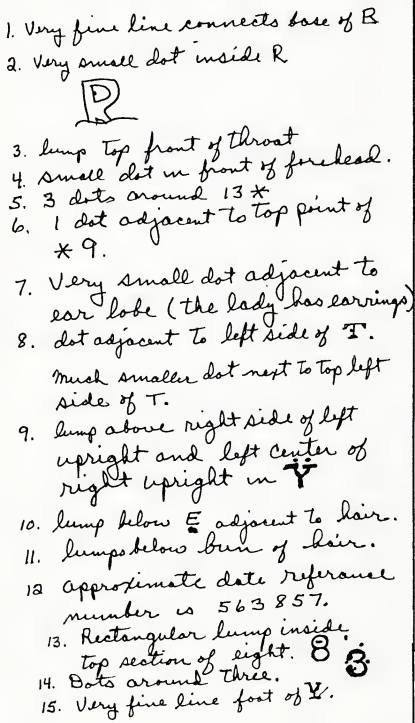 1. Very fine line connects base of R
2. Very small dot inside R
R
3. lump top front of throat
4. small dot in front of forehead.
5. 3 dots around 13 *
6. 1 dot adjacent to top point of
* 9.
7. Very small dot adjacent to
ear lobe (the lady has earrings)
8. dot adjacent to left side of T.
Much smaller dot next to top left
side of T.
9. lump above right side of left
upright and left center of
right upright in Y
10. lump below E adjacent to hair.
11. lumps below bun of hair.
12 approximate date referance
number is 563857.
13. Rectangular lump inside
top section of eight. 8 3
14. Dots around three.
15. Very fine line foot of Y.